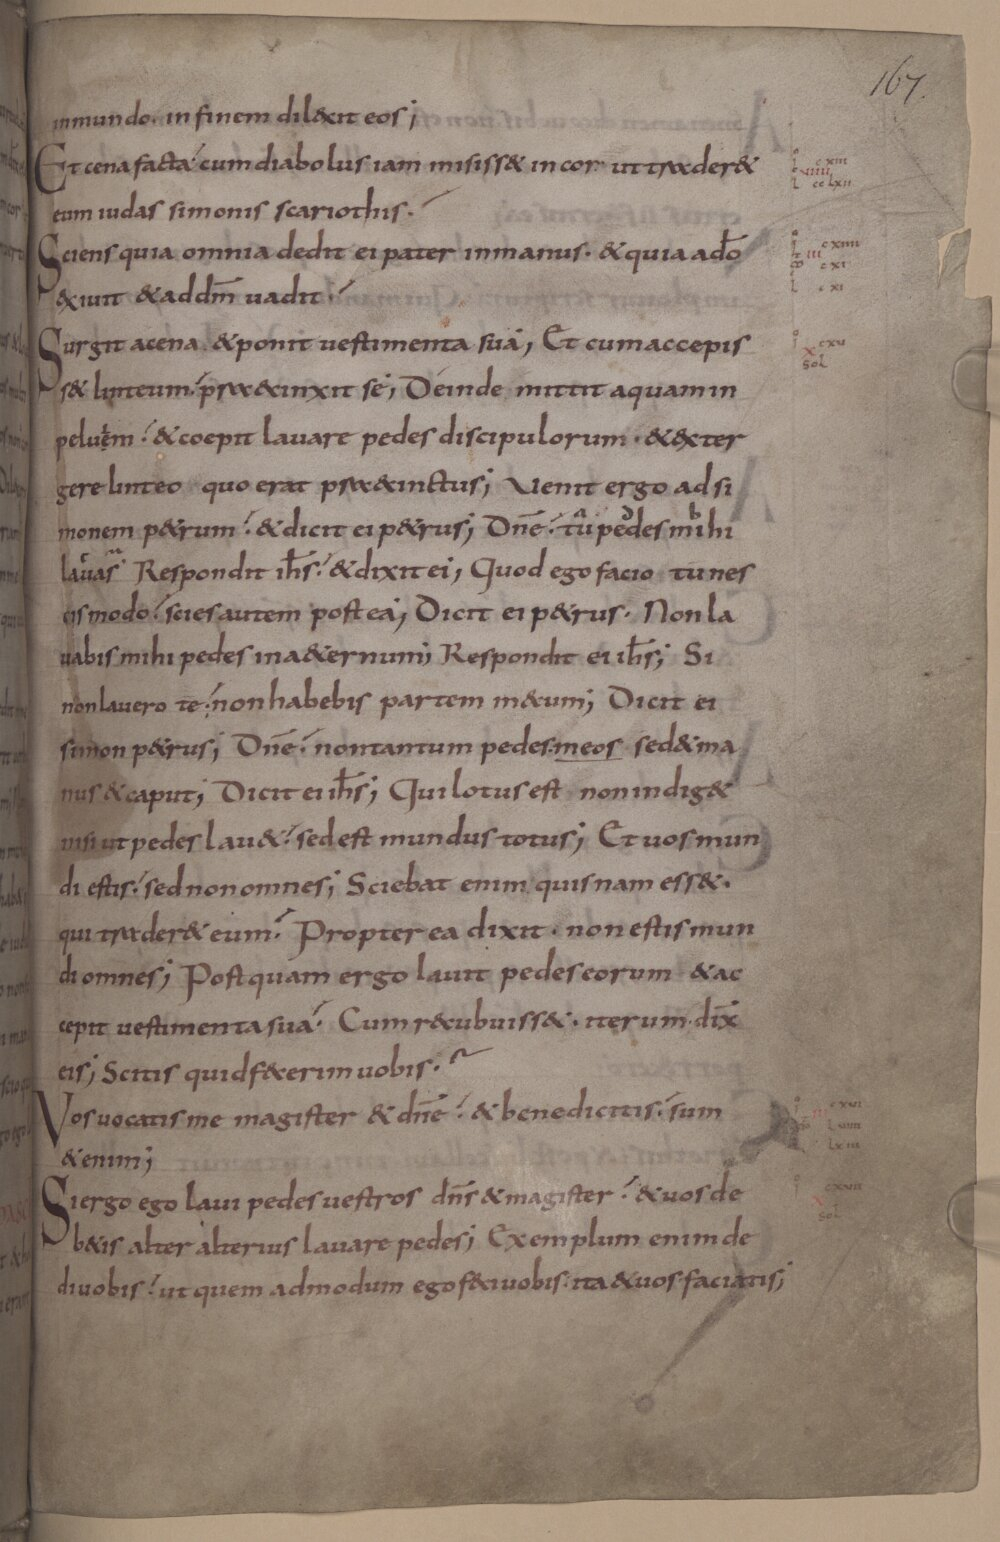 167.
inmundo. in finem dil&xit eos;
Et cena facta. cum diabolus iam misiss& in cor. ut trader&
eum iudas simonis scariothis.
Sciens quia omnia dedit ei pater in manus. & quia a dō
exiuit & ad dm̄ uadit.
Surgit a cena. & ponit uestimenta sua; Et cum accepis
s& linteum. præcinxit se; Deinde mittit aquam in
peluem. & coepit lauare pedes discipulorum. & exter
gere linteo quo erat præcinctus; Uenit ergo ad si
monem p&rum. & dicit ei p&rus; Dn̄e. tu pedes mihi
lauas Respondit ih̄s. & dixit ei, Quod ego facio tu nes
cis modo. scies autem postea; Dicit ei p&rus. Non la
uabis mihi pedes in a&ernum; Respondit ei ih̄s; Si
non lauero te. non habebis partem mecum; Dicit ei
simon p&rus; Dn̄e. non tantum pedes meos sed & ma
nus & caput; Dicit ei ih̄s; Qui lotus est non indig&
nisi ut pedes lau&. sed est mundus totus; Et uos mun
di estis. sed non omnes; Sciebat enim quisnam ess&.
qui trader& eum. Propterea dixit. non estis mun
di omnes; Postquam ergo lauit pedes eorum & ac
cepit uestimenta sua. Cum recubuiss&. iterum dix̄
eis; Scitis quid fecerim uobis.
Vos uocatis me magister & dn̄e. & bene dicitis. sum
&enim;
Si ergo ego laui pedes uestros dn̄s & magister. & uos de
b&is alter alterius lauare pedes; Exemplum enim de
di uobis. ut quem admodum ego feci uobis. ita & uos faciatis;